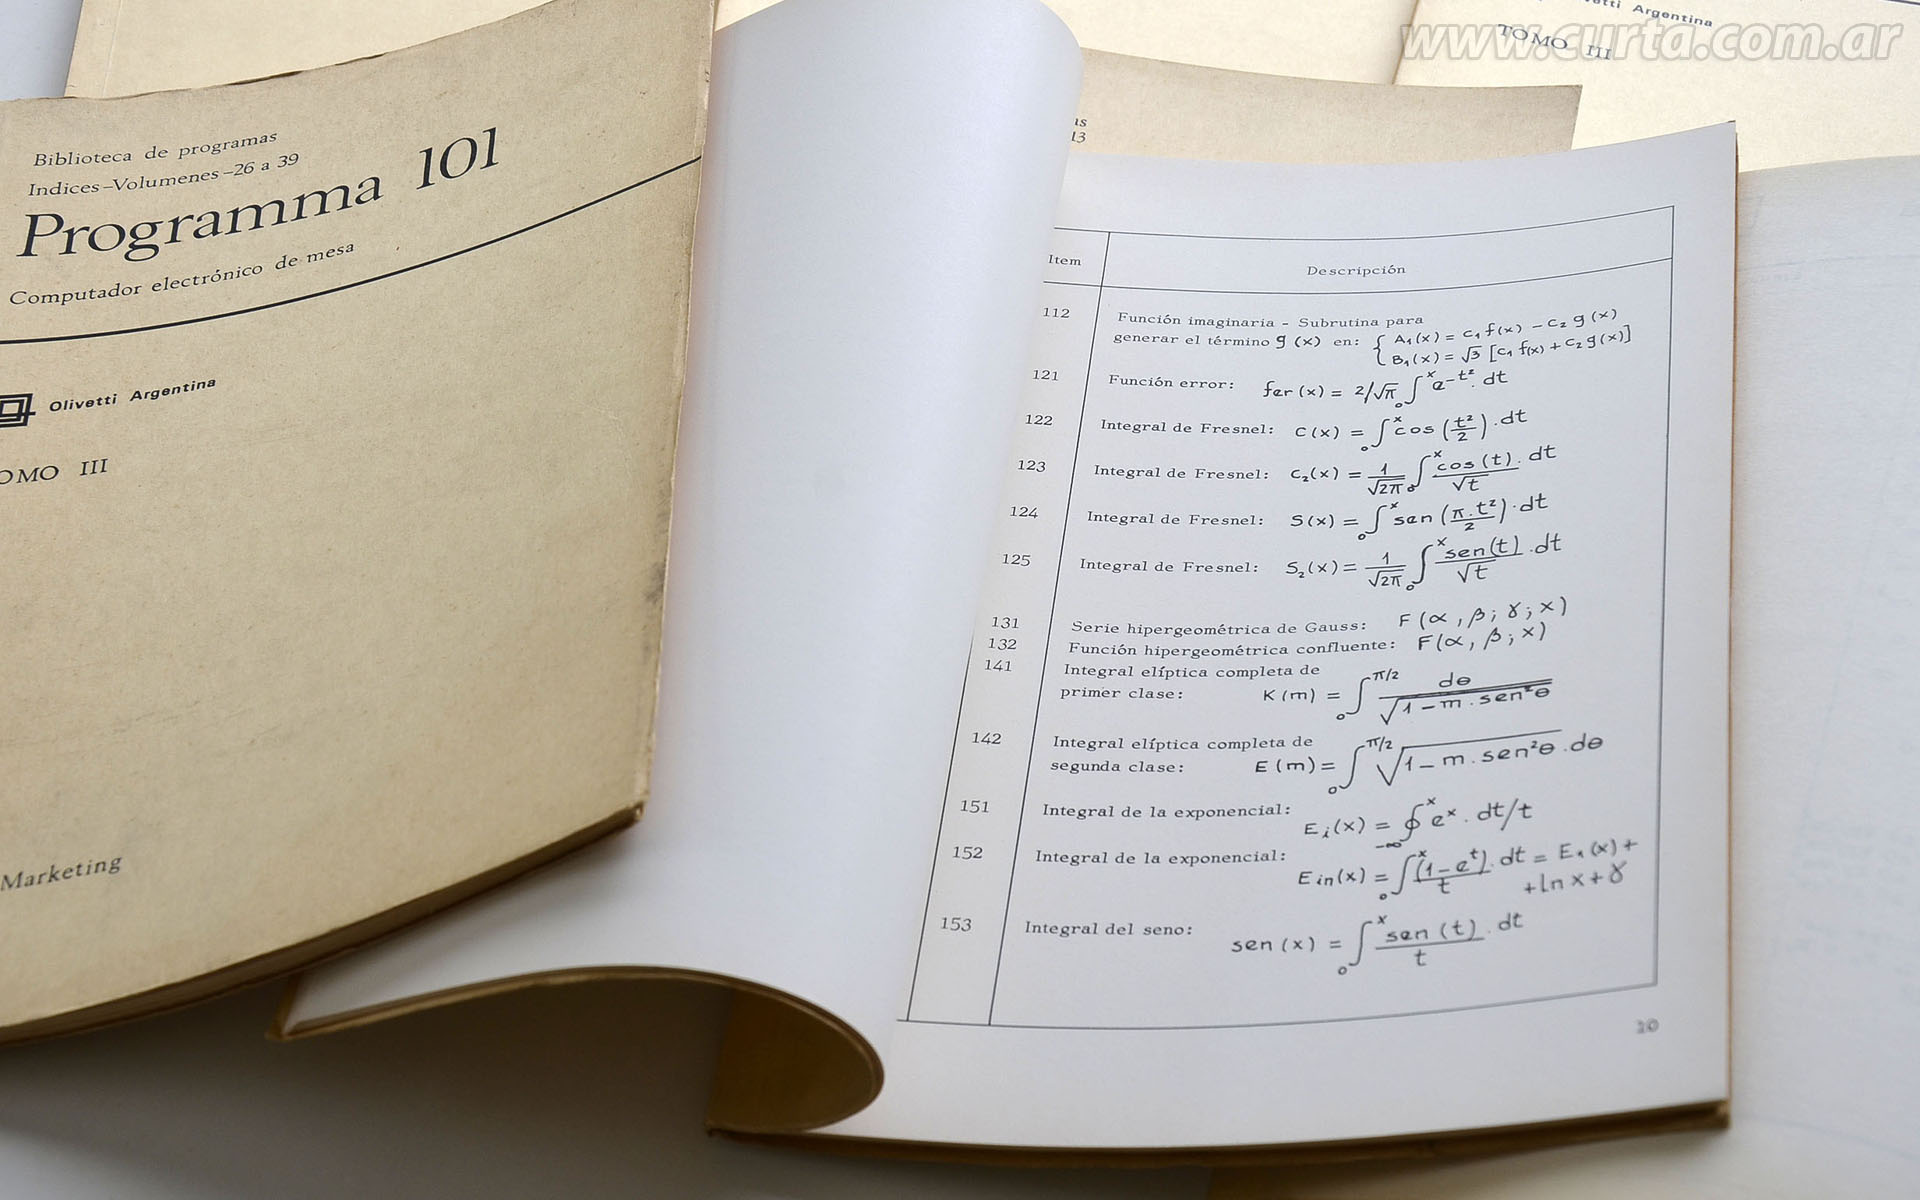 www.curta.com.ar
Olivetti Argentina
TOMO III
13
Biblioteca de programas
Indices-Volumenes-26 a 39
Programma 101
Computador electrónico de mesa
Olivetti Argentina
TOMO III
Marketing
Item Descripción
112 Función imaginaria - Subrutina para
generar el término g (x) en: { A₁(x) = c₁ f(x) - c₂ g(x)
B₁(x) = √3 [c₁ f(x) + c₂ g(x)]
121 Función error: fer(x) = 2/√π ∫₀ˣ e^-t². dt
122 Integral de Fresnel: C(x) = ∫₀ˣ cos (t²/2). dt
123 Integral de Fresnel: C₂(x) = 1/√2π ∫₀ˣ cos(t)/√t . dt
124 Integral de Fresnel: S(x) = ∫₀ˣ sen (π.t²/2). dt
125 Integral de Fresnel: S₂(x) = 1/√2π ∫₀ˣ sen(t)/√t . dt
131 Serie hipergeométrica de Gauss: F(α, β; γ; x)
132 Función hipergeométrica confluente: F(α, β; x)
141 Integral elíptica completa de
primer clase: K(m) = ∫₀^π/2 dθ/√1-m.sen²θ
142 Integral elíptica completa de
segunda clase: E(m) = ∫₀^π/2 √1-m.sen²θ . dθ
151 Integral de la exponencial:
Ei(x) = ∮₋∞ˣ eˣ. dt/t
152 Integral de la exponencial:
Ein(x) = ∫₀ˣ (1-eᵗ)/t . dt = E₁(x)+
+ln x+γ
153 Integral del seno:
sen(x) = ∫₀ˣ sen(t)/t . dt
10